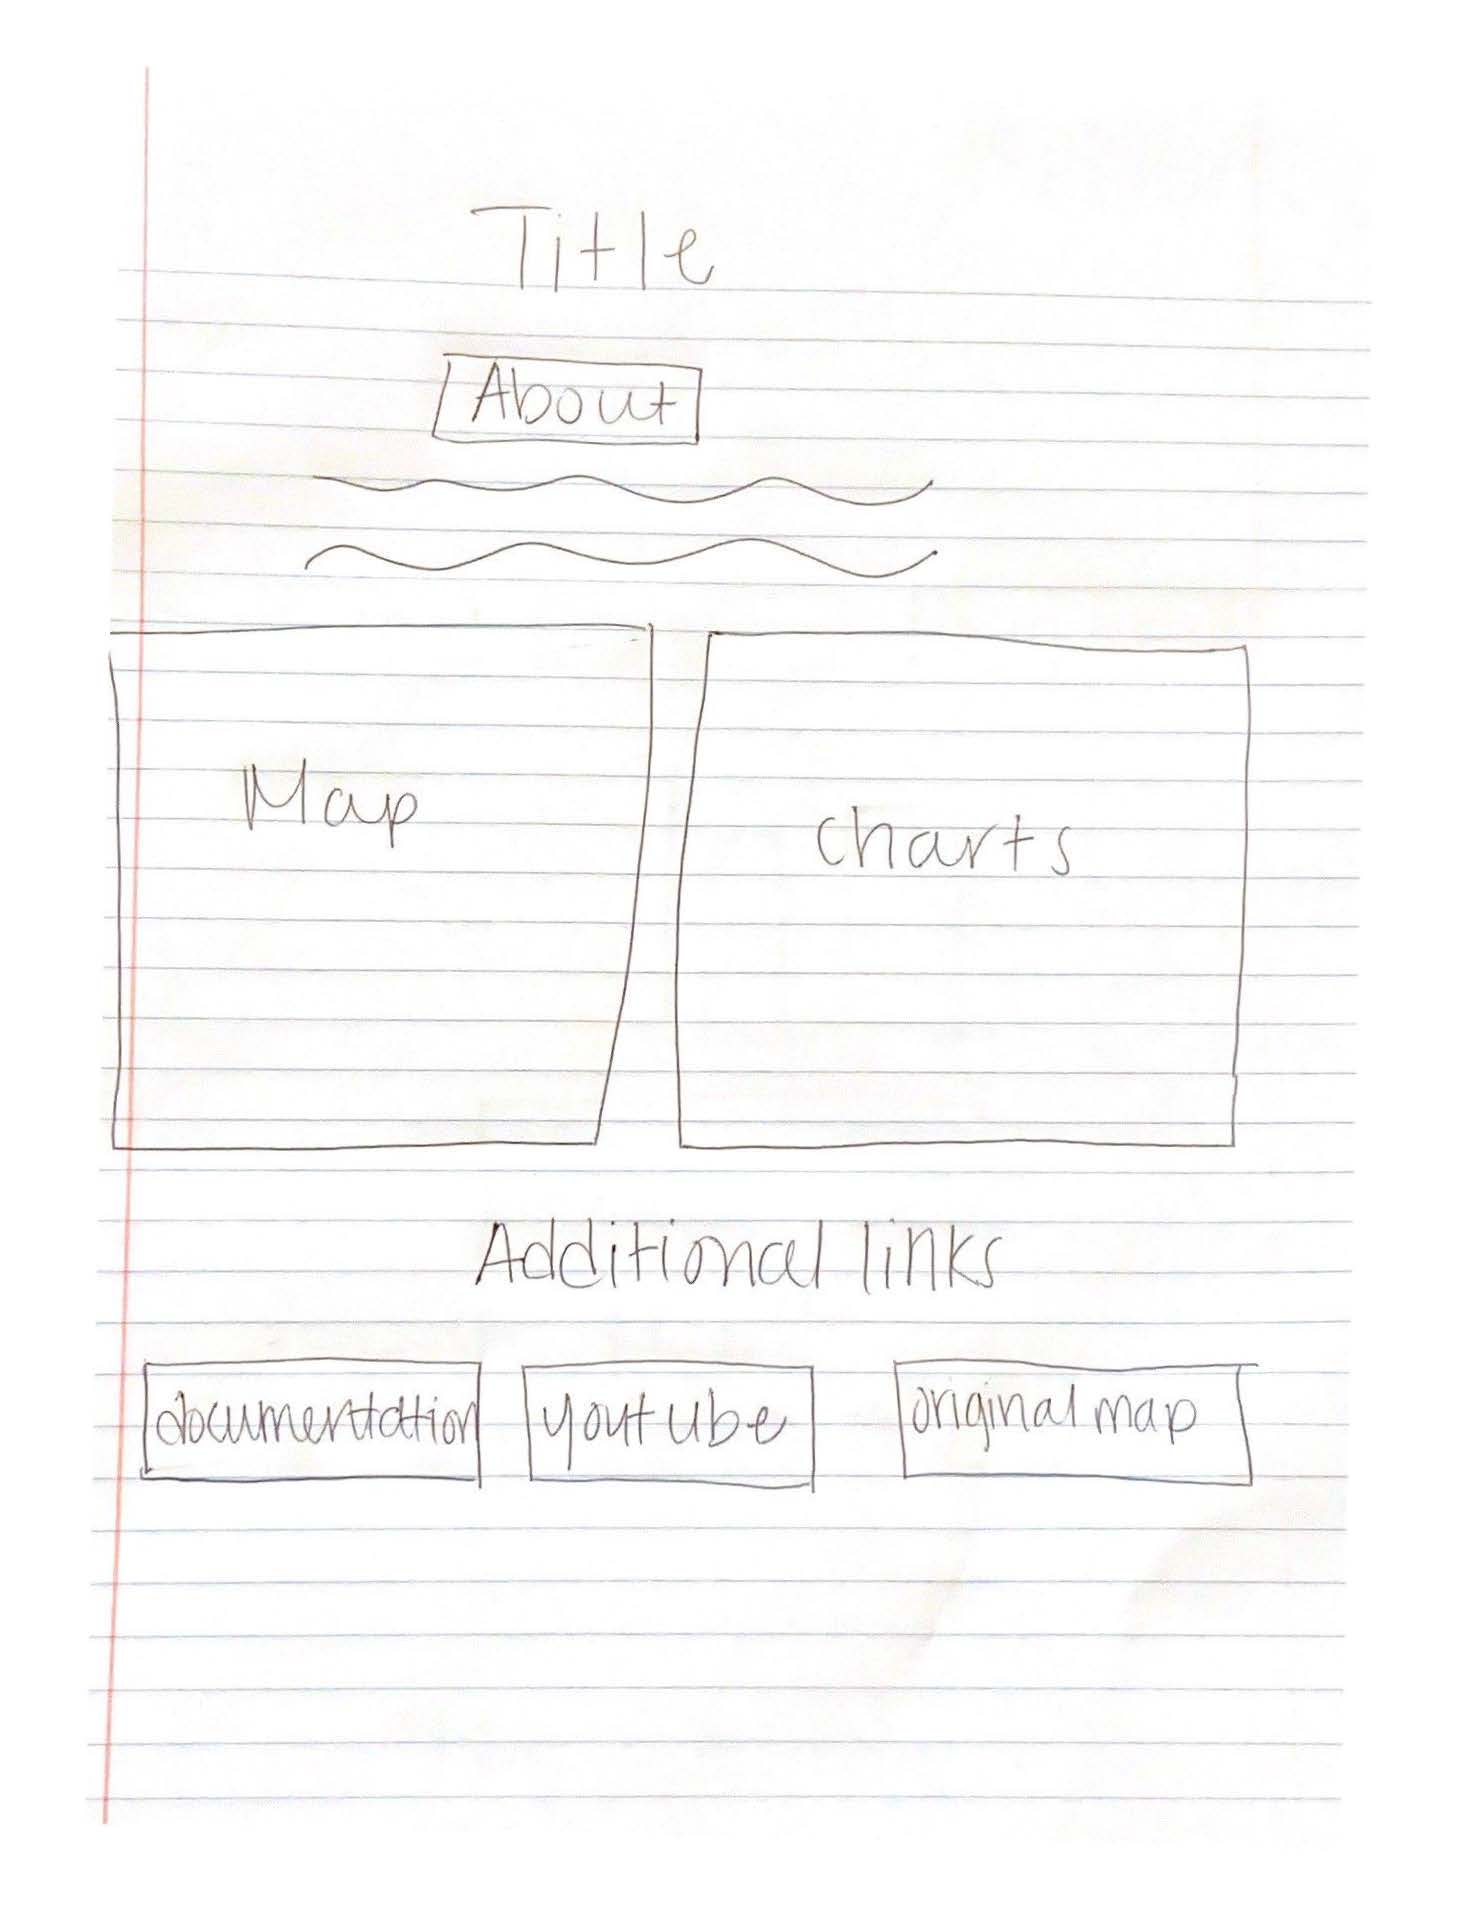 Title
About
Map
Charts
Additional links
documentation
youtube
original map